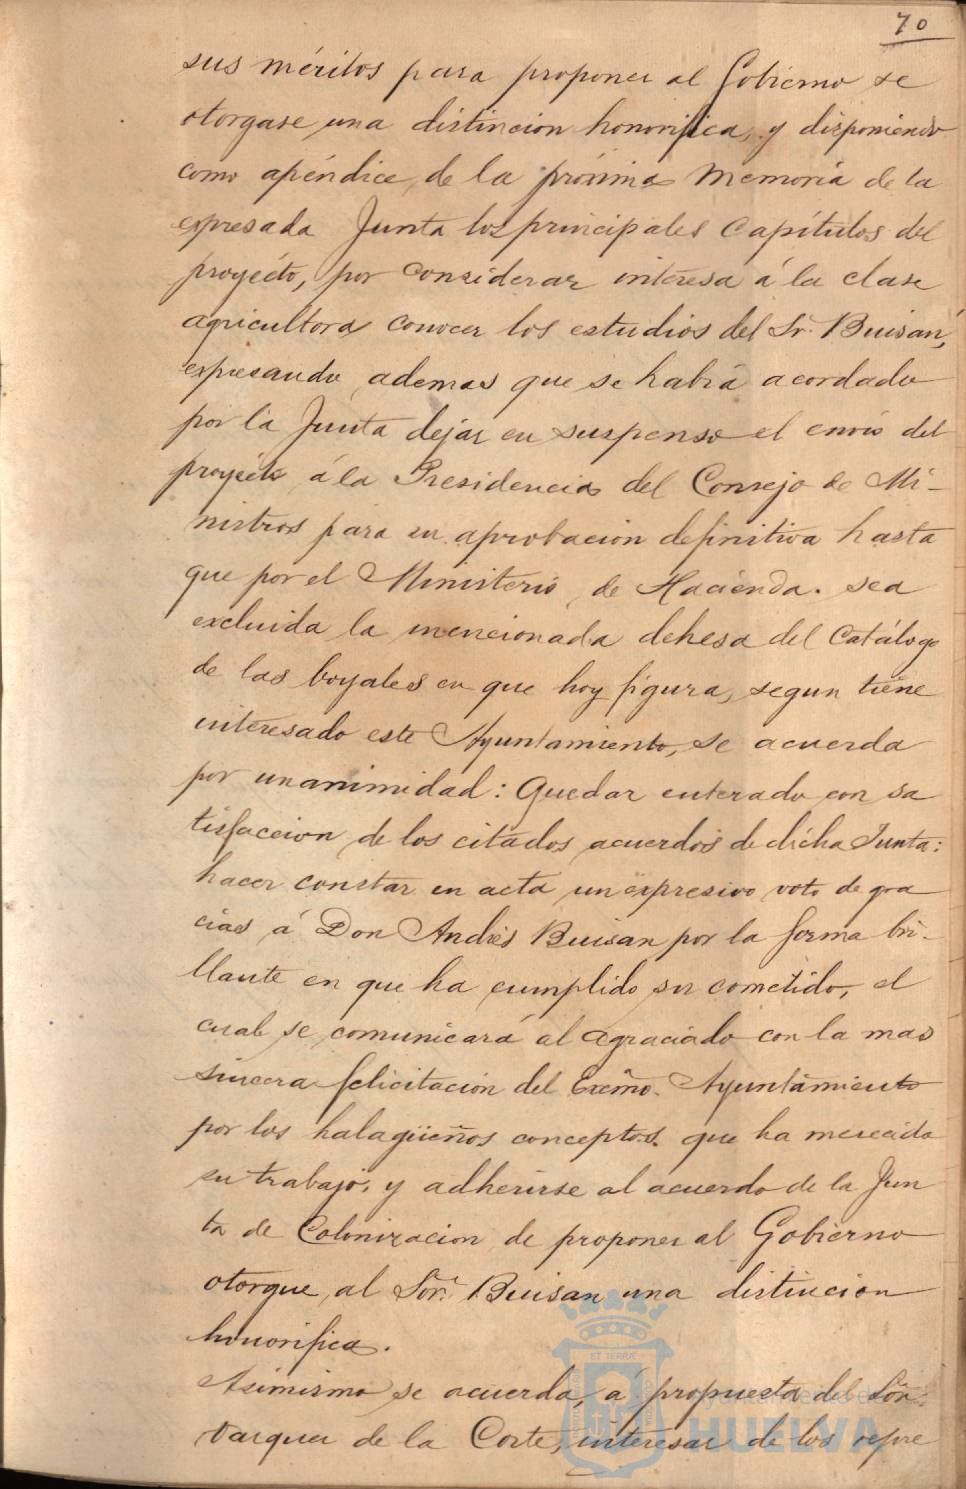 70
sus méritos para proponer al Gobierno se
otorgase una distincion honorifica, y disponiendo
como apéndice de la próxima Memoria de la
expresada Junta los principales Capítulos del
proyécto, por considerar interesa á la clase
agricultora conocer los estudios del Sr. Buisan,
expresando ademas que se habia acordado
por la Junta dejar en suspenso el envio del
proyécto á la Presidencia del Consejo de Mi-
nistros para su aprobacion definitiva hasta
que por el Ministerio de Hacienda. sea
excluida la mencionada dehesa del Catálogo
de las boyales en que hoy figura, segun tiene
interesado este Ayuntamiento, se acuerda
por unanimidad: Quedar enterado con sa
tisfaccion de los citados acuerdos de dicha Junta:
hacer constar en acta un expresivo voto de gra
cias á Don Andrés Buisan por la forma bri-
llante en que ha cumplido su cometido, el
cual se comunicará al agraciado con la mas
sincera felicitación del Excmo. Ayuntamiento
por los halagüeños conceptos que ha merecido
su trabajo, y adherirse al acuerdo de la Jun
ta de Colonizacion de proponer al Gobierno
otorgue al Sor. Buisan una distincion
honorifica.
Asimismo se acuerda, á propuesta del Sor.
Vazquez de la Corte, interesar de los repre
ET TERRÆ
Ayuntamiento de
HUELVA